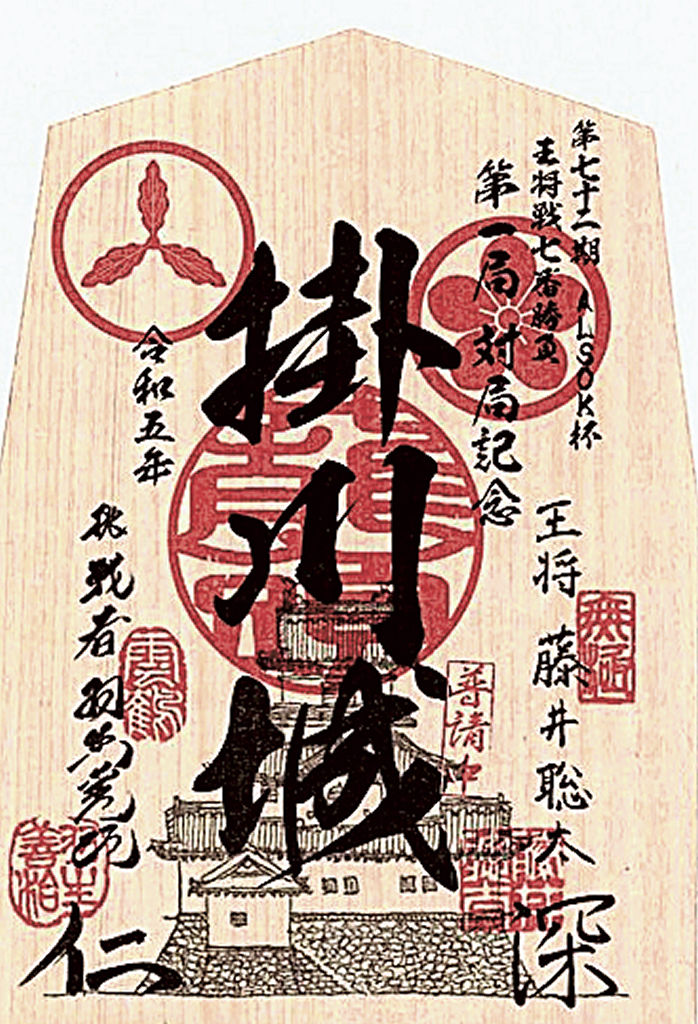 第七十二期 ALSOK杯
王将戦七番勝負
第一局対局記念
掛川城
令和五年
王将 藤井聡太
無極
深
普請中
挑戦者 羽生善治
雲鶴
羽生
善治
仁